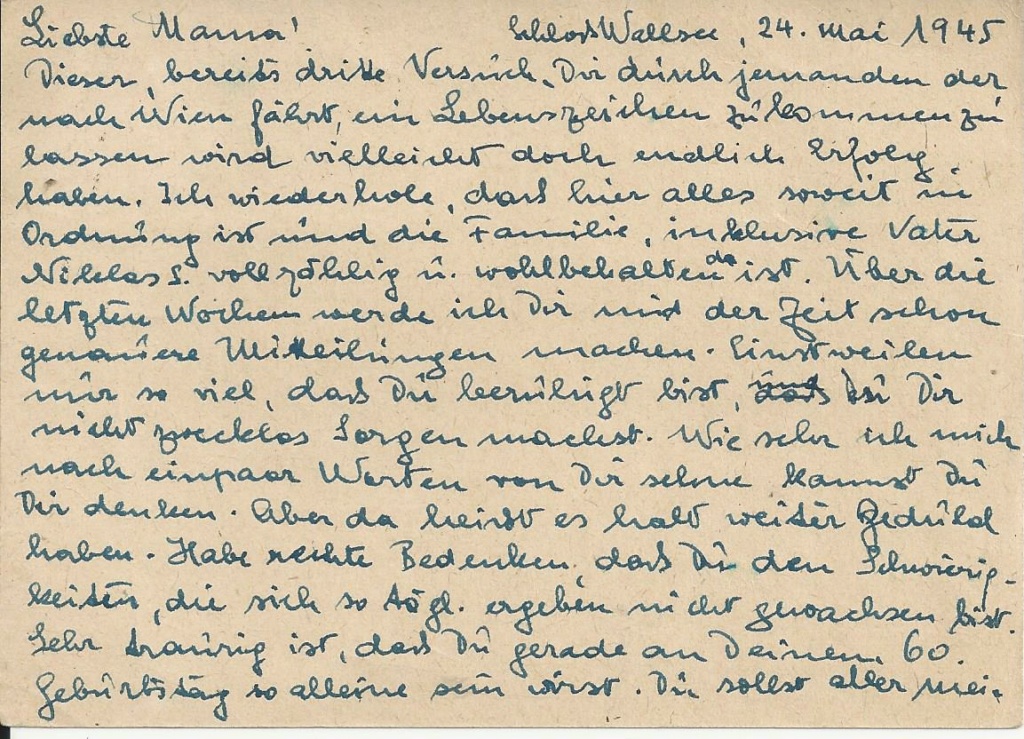 Liebste Mama! Schloß Wallsee, 24. Mai 1945
Dieser, bereits dritte Versuch, Dir durch jemanden der
nach Wien fährt, ein Lebenszeichen zukommen zu
lassen wird vielleicht doch endlich Erfolg
haben. Ich wiederhole, daß hier alles soweit in
Ordnung ist und die Familie, inklusive Vater
Niklas S. vollzählig u. wohlbehalten da ist. Über die
letzten Wochen werde ich Dir mit der Zeit schon
genauere Mitteilungen machen. Einstweilen
nur so viel, daß Du beruhigt bist, und Du Dir
nicht zwecklos Sorgen machst. Wie sehr ich mich
nach einpaar Worten von Dir sehne kannst Du
Dir denken. Aber da heißt es halt weiter Geduld
haben. Habe rechte Bedenken, daß Du den Schwierig-
keiten, die sich so tägl. ergeben nicht gewachsen bist.
Sehr traurig ist, daß Du gerade an Deinem 60.
Geburtstag so alleine sein wirst. Du sollst aller mei-